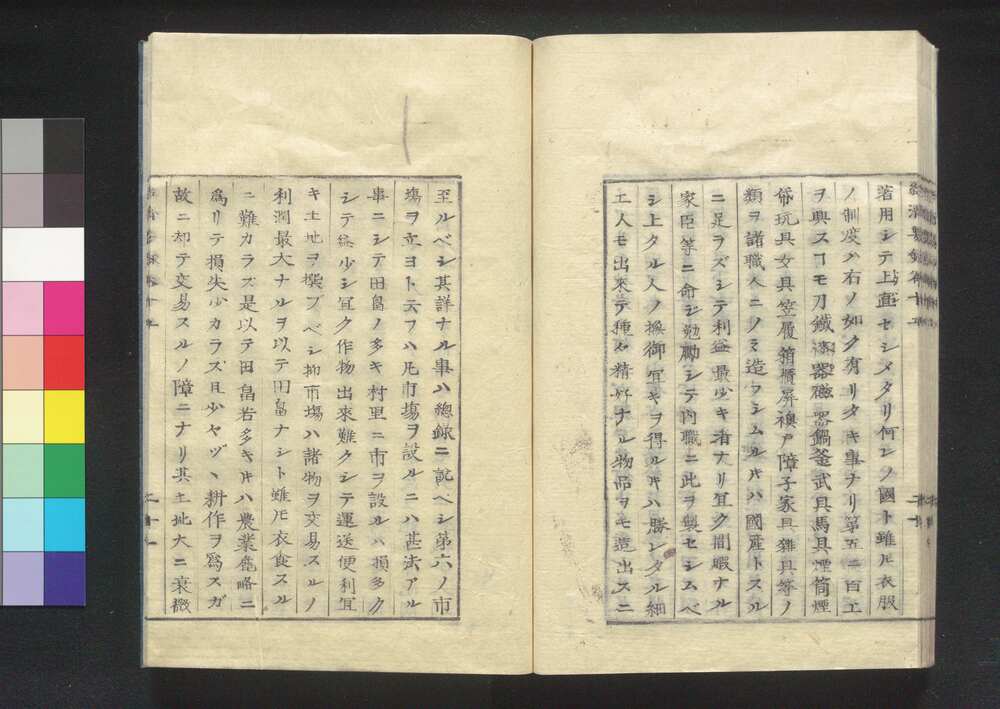 著用シテ上直セシメタリ何レノ國ト雖ﾓ衣服
ノ制度ハ右ノ如ク有リタキ事ナリ第五ニ百工
ヲ興スヿモ刀鐵漆器磁器鍋釜武具馬具煙筒煙
袋玩具女具笠履箱櫃屏襖戸障子家具雜具等ノ
類ヲ諸職人ニノミ造ラシムルﾄｷハ國産トスル
ニ足ラズシテ利益最少キ者ナリ宜ク間暇ナル
家臣等ニ命ジ勉勵シテ内職ニ此ヲ製セシムベ
シ上タル人ノ操御宜キヲ得ルﾄｷハ勝レタル細
工人モ出來テ種々精好ナル物品ヲモ造出スニ
至ルベシ其詳ナル事ハ總錄ニ説ベシ第六ノ市
場ヲ立ヨト云フハ凡市場ヲ設ルニハ甚法アル
事ニシテ田畠ノ多キ村里ニ市ヲ設ルハ損多ク
シテ益少シ宜ク作物出來難クシテ運送便利宜
キ土地ヲ撰ブベシ抑市場ハ諸物ヲ交易スルノ
利潤最大ナルヲ以テ田畠ナシト雖ﾓ衣食スル
ニ難カラズ是以テ田畠若多キﾄｷハ農業麁略ニ
爲リテ損失少カラズ且少ヤヅヽ耕作ヲ爲スガ
故ニ却テ交易スルノ障ニナリ其土地大ニ衰微